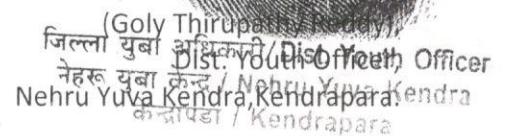 (Goly Thirupathy Reddy),
जिल्ला युबा अधिकारी / Dist. Youth Officer
Dist. Youth Officer,
नेहरू युबा केन्द्र / Nehru Yuva Kendra
Nehru Yuva Kendra,Kendrapara.
केन्द्रापडा / Kendrapara